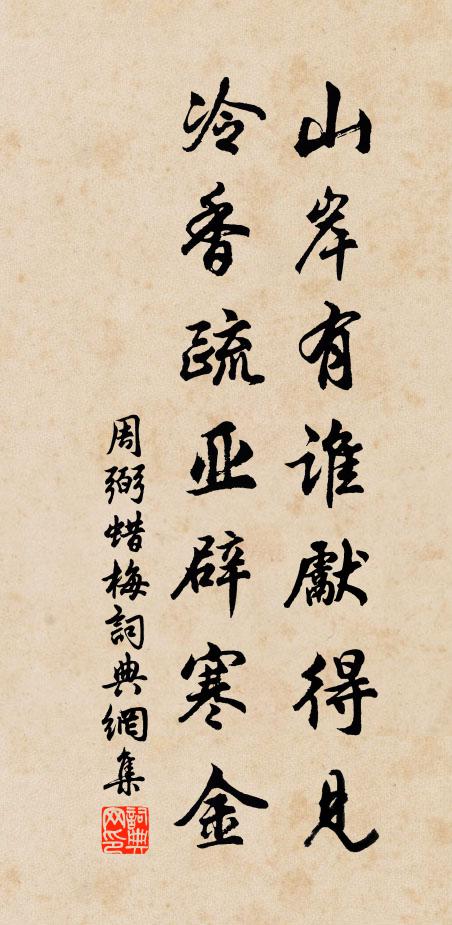 山岸有誰獻得見
冷香疏亚辟寒金
周弼蜡梅詞典網集
詞典网印